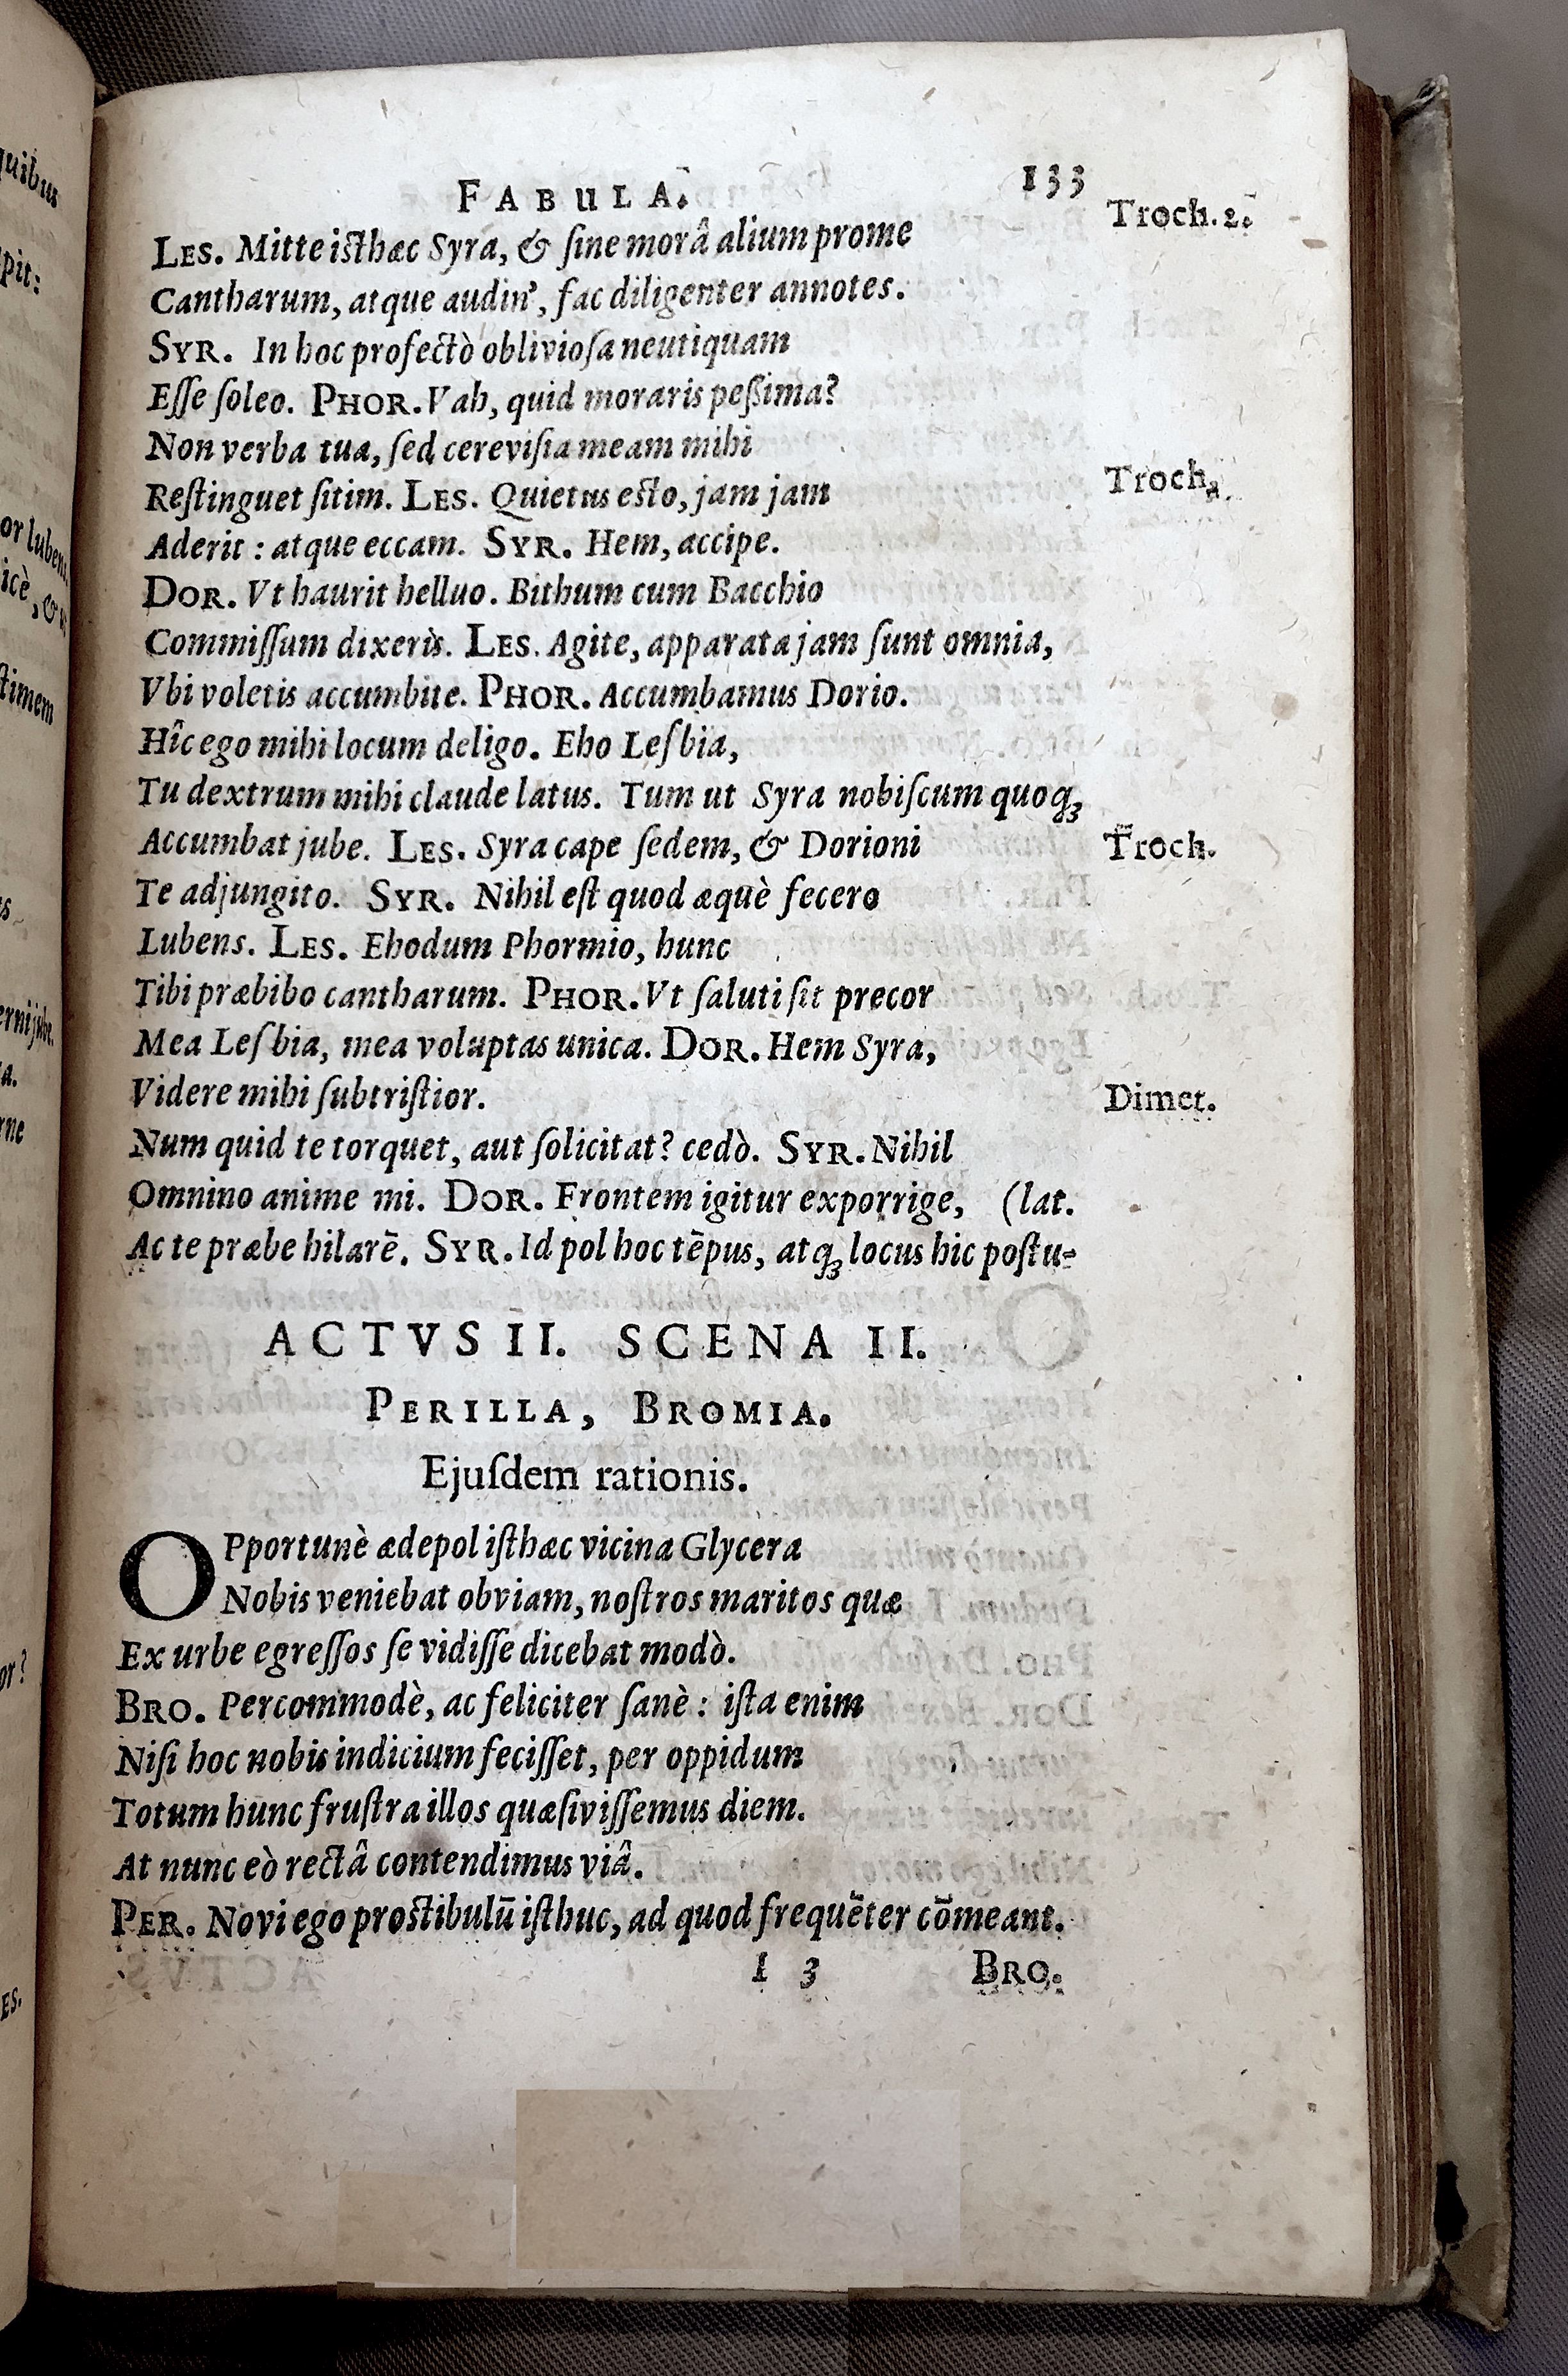 FABULA. 133
LES. Mitte isthæc Syra, & ſine morâ alium prome Troch. 2.
Cantharum, atque audin', fac diligenter annotes.
SYR. In hoc profectò oblivioſa neutiquam
Eſſe ſoleo. PHOR. Vah, quid moraris peſsima?
Non verba tua, ſed cereviſia meam mihi
Reſtinguet ſitim. LES. Quietus esto, jam jam Troch.
Aderit : atque eccam. SYR. Hem, accipe.
DOR. Vt haurit helluo. Bithum cum Bacchio
Commiſſum dixeris. LES. Agite, apparata jam ſunt omnia,
Vbi voletis accumbite. PHOR. Accumbamus Dorio.
Hîc ego mihi locum deligo. Eho Lesbia,
Tu dextrum mihi claude latus. Tum ut Syra nobiſcum quoqꝫ
Accumbat jube. LES. Syra cape ſedem, & Dorioni Troch.
Te adjungito. SYR. Nihil eſt quod æquè fecero
Lubens. LES. Ehodum Phormio, hunc
Tibi præbibo cantharum. PHOR. Vt ſaluti ſit precor
Mea Leſbia, mea voluptas unica. DOR. Hem Syra,
Videre mihi ſubtriſtior. Dimet.
Num quid te torquet, aut ſolicitat? cedò. SYR. Nihil
Omnino anime mi. DOR. Frontem igitur exporrige, (lat.
Ac te præbe hilarē. SYR. Id pol hoc tēpus, atqꝫ locus hic poſtu-
ACTVS II. SCENA II.
PERILLA, BROMIA.
Ejuſdem rationis.
OPportunè ædepol iſthæc vicina Glycera
Nobis veniebat obviam, noſtros maritos quæ
Ex urbe egreſſos ſe vidiſſe dicebat modò.
BRO. Percommodè, ac feliciter ſanè : iſta enim
Niſi hoc nobis indicium feciſſet, per oppidum
Totum hunc fruſtra illos quæſiviſſemus diem.
At nunc eò rectâ contendimus viâ.
PER. Novi ego prostibulū iſthuc, ad quod frequēter cōmeant.
I 3 BRO.
quibus
pit:
or luben
icè, &
ſtimem
us
erni jube.
a.
rne
or?
ES.